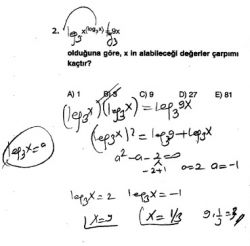 2. log₃x^(log₃x) = log₃9x
olduğuna göre, x in alabileceği değerler çarpımı
kaçtır?
A) 1 B) 3 C) 9 D) 27 E) 81
(log₃x)(log₃x) = log₃9x
(log₃x)² = log₃9 + log₃x
log₃x = a
a² - a - 2 = 0
-2+1
a = 2 a = -1
log₃x = 2 log₃x = -1
x = 9 x = 1/3 9.1/3 = 3